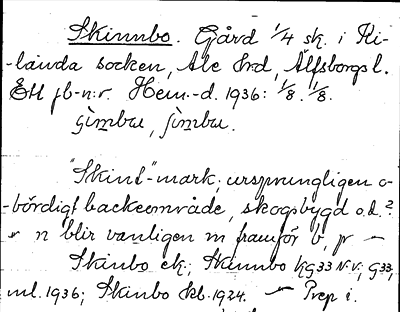 Skinnbo. Gård 1/4 sk. i Ki-
-landa socken, Ale hrd, Älfsborgs l.
Ett jb-n:r. Hem.-d. 1936: 1/8. 1/8.
"Skinn"-mark; ursprungligen o-
-bördigt backeområde, skogsbygd o.d.?
n blir vanligen m framför b, p —
Skinbo ek.; Skinnbo kg 33 N.V.; G 33,
ml. 1936; Skinbo Skl. 1924. — Prep i.